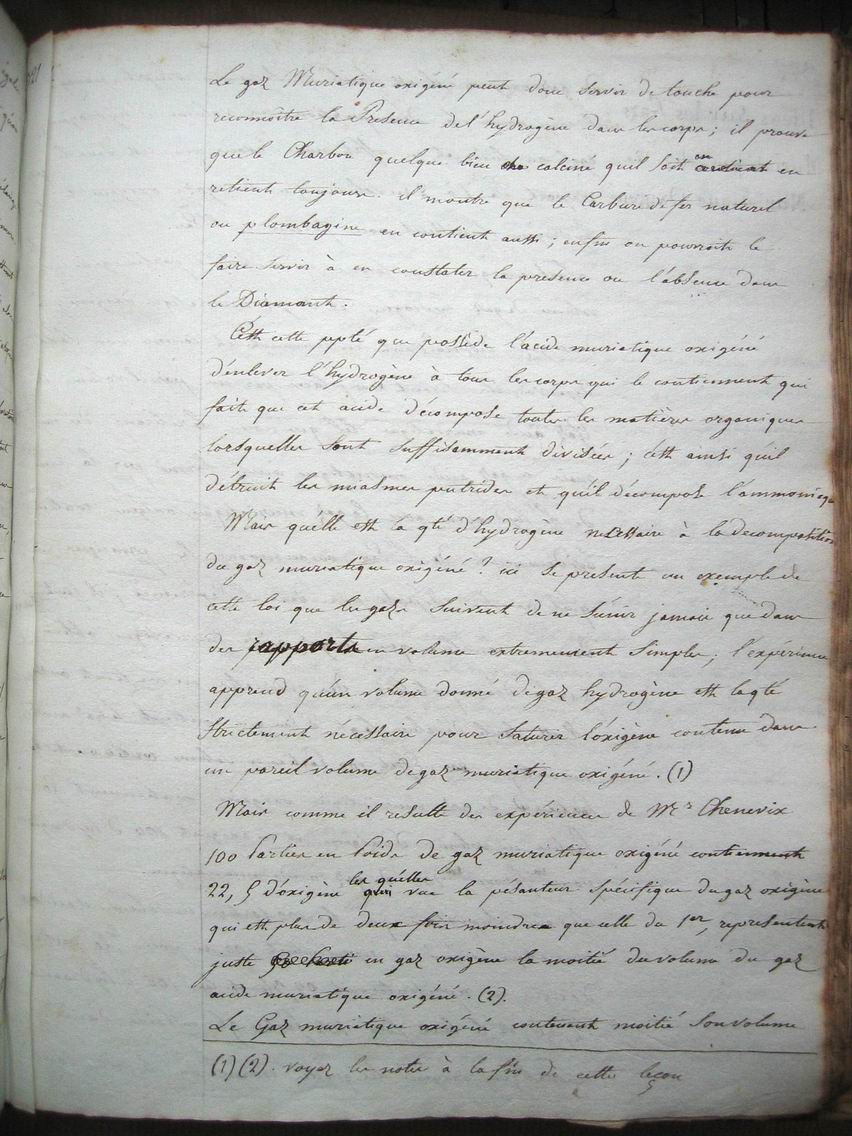 Le gaz Muriatique oxigéné peut donc servir de touche pour
reconnoitre la Présence de l'hydrogène dans les corps; il prouve
que le Charbon quelque bien calciné qu'il soit en en
retient toujours. il montre que le Carbure de fer naturel
ou plombagine en contient aussi; enfin on pourroit le
faire servir à en constater la presence ou l'absence dans
le Diamant.
C'est cette ppté que possède l'acide muriatique oxigéné
d'enlever l'hydrogène à tous les corps qui le contiennent qui
fait que cet acide décompose toutes les matières organiques
lorsqu'elles sont suffisamment divisées; c'est ainsi qu'il
détruit les miasmes putrides et qu'il décompose l'ammoniaque
Mais quelle est la qté d'hydrogène nécessaire à la decomposition
du gaz muriatique oxigéné? ici se présente un exemple de
cette loi que les gaz suivent de ne s'unir jamais que dans
des rapports en volume extremement simples; l'expérience
apprend qu'un volume donné de gaz hydrogène est la qté
strictement nécessaire pour saturer l'oxigène contenu dans
un pareil volume de gaz muriatique oxigéné. (1)
Mais comme il resulte des expériences de Mr Chenevix
100 Parties en Poids de gaz muriatique oxigéné contiennent
22,5 d'oxigène les quelles vue la pésanteur spécifique du gaz oxigène
qui est plus de deux fois moindre que celle du 1er, représentent
juste en gaz oxigène la moitié du volume du gaz
acide muriatique oxigéné. (2).
Le Gaz muriatique oxigéné contenant moitié son volume
(1) (2). voyez les notes à la fin de cette leçon